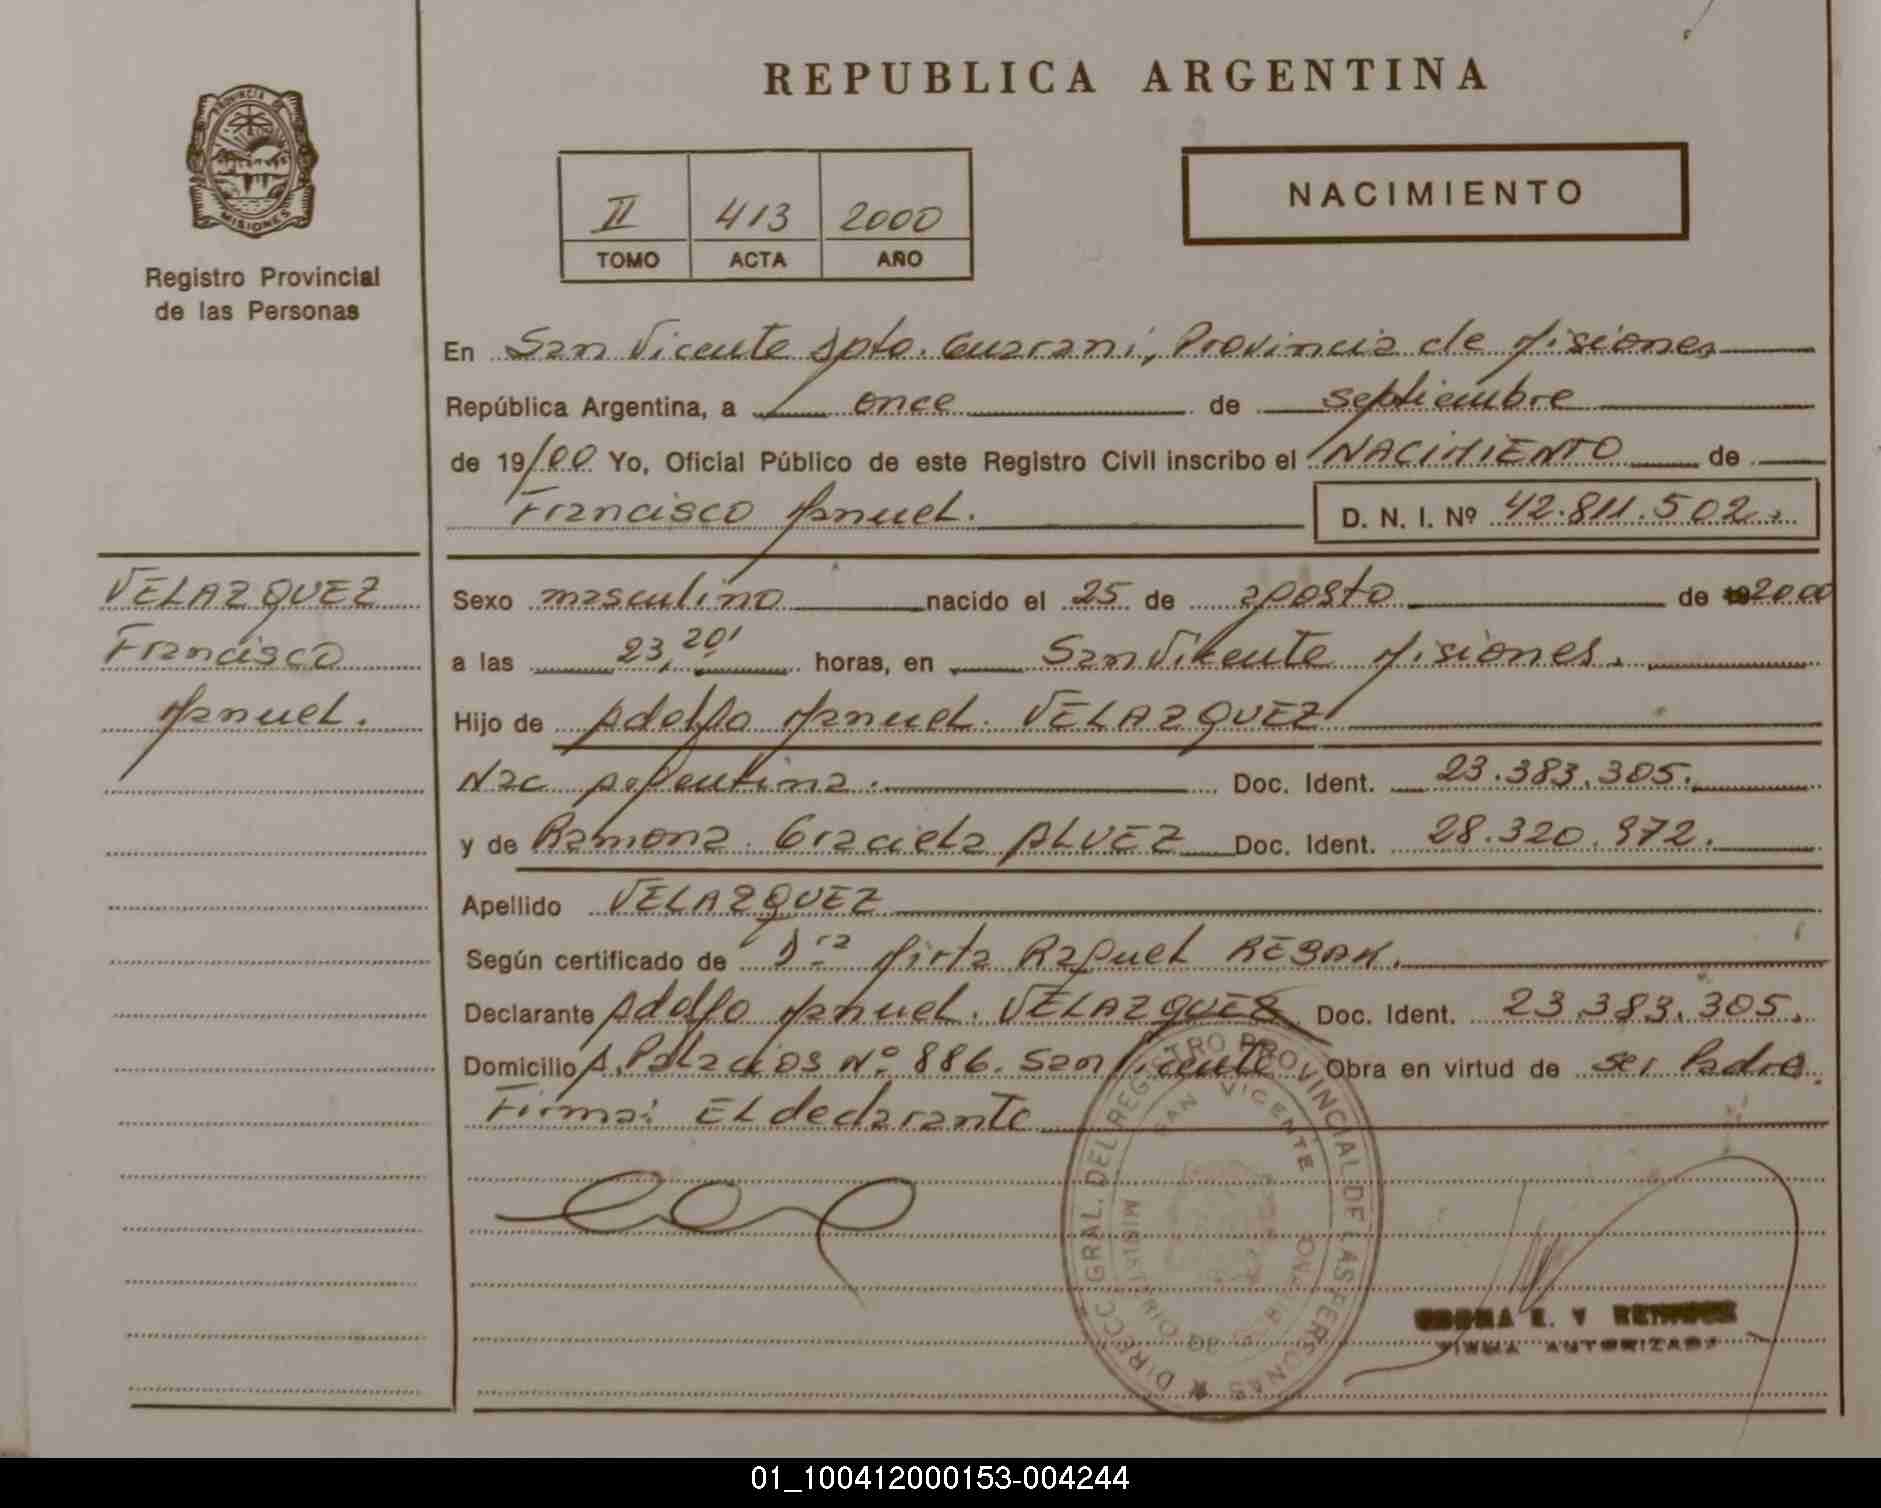 REPUBLICA ARGENTINA
PROVINCIA DE
MISIONES
Registro Provincial
de las Personas
II 413 2000
TOMO ACTA AÑO
NACIMIENTO
En San Vicente Dpto. Guarani, Provincia de Misiones
República Argentina, a once de septiembre
de 19/00 Yo, Oficial Público de este Registro Civil inscribo el NACIMIENTO de
Francisco Manuel. D. N. I. Nº 42.811.502.
VELAZQUEZ
Francisco
Manuel.
Sexo masculino nacido el 25 de agosto de 2000
a las 23,20' horas, en San Vicente Misiones.
Hijo de Adolfo Manuel. VELAZQUEZ
Nac Argentina. Doc. Ident. 23.383.305.
y de Ramona. Graciela ALVEZ Doc. Ident. 28.320.972.
Apellido VELAZQUEZ
Según certificado de Dra Mirta Raquel
Declarante Adolfo Manuel. VELAZQUEZ Doc. Ident. 23.383.305.
Domicilio A. Palacios Nº 886. San Vicente Obra en virtud de ser Padre.
Firma: El declarante
DIRECC. GRAL. DEL REGISTRO PROVINCIAL DE LAS PERSONAS
SAN VICENTE
FIRMA AUTORIZADA
01_100412000153-004244